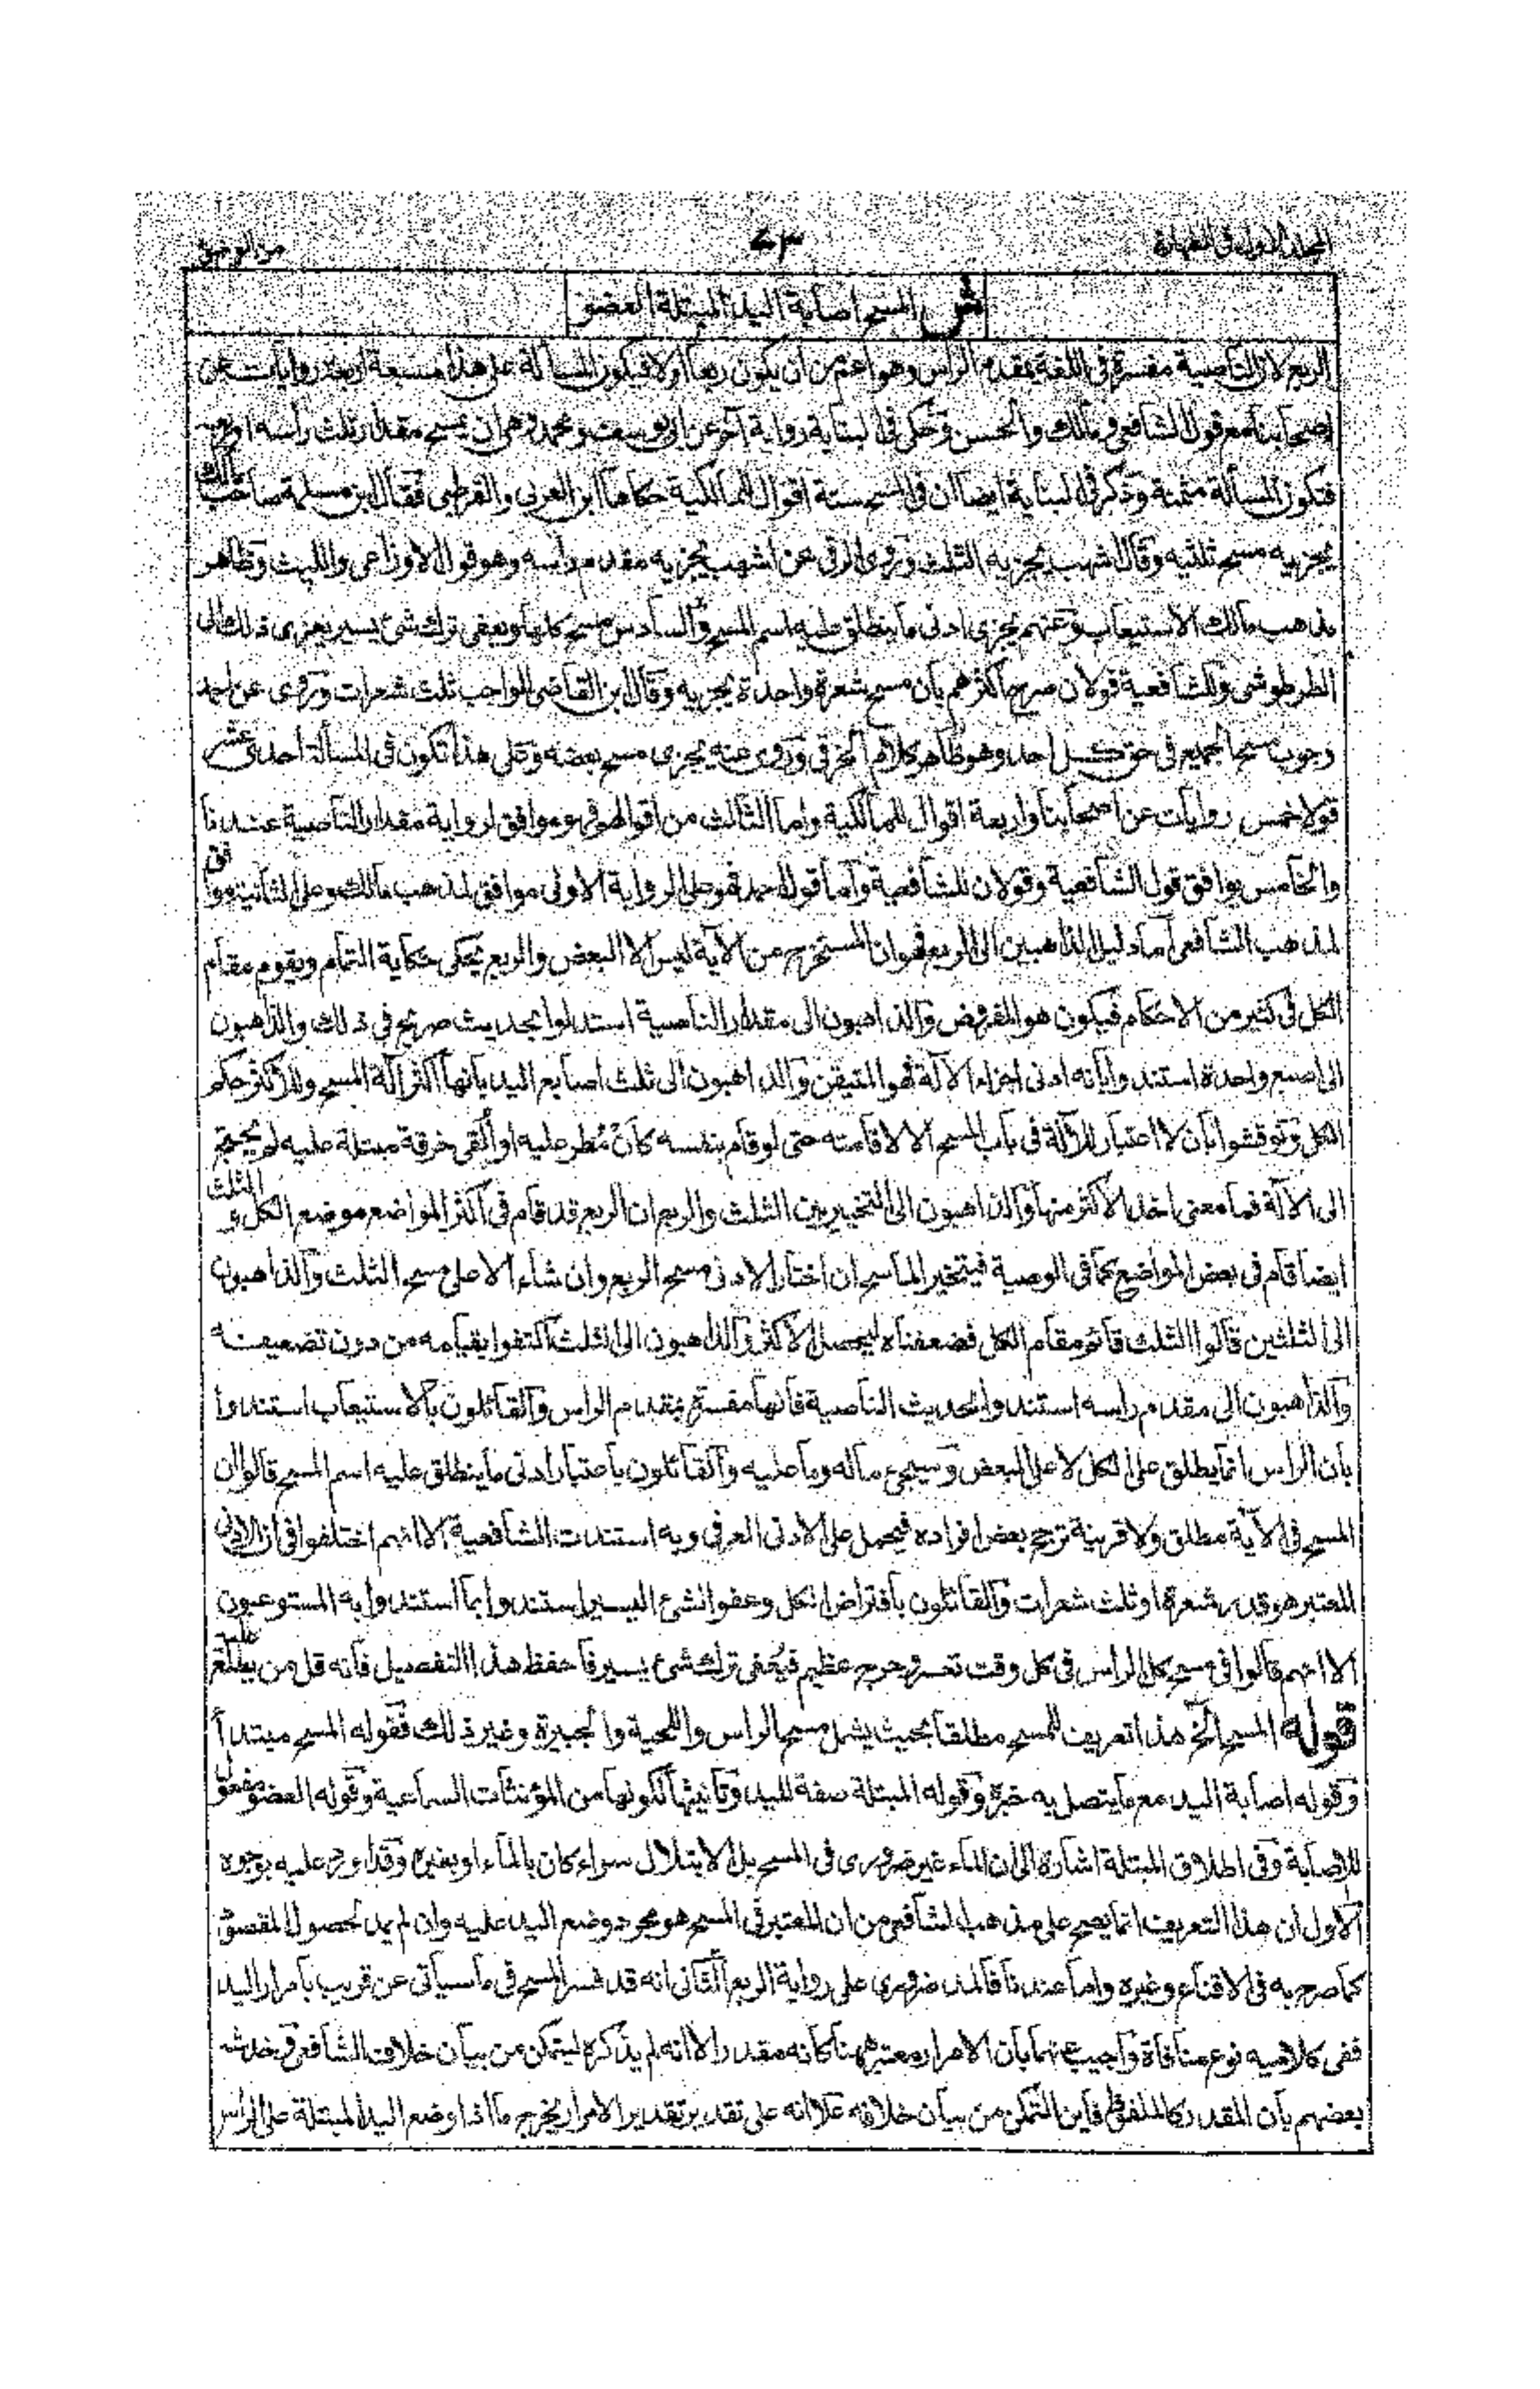 المجلد الاول فى الطهارة
٧٣
من الوضوء
ش المسح اصابة اليد المبتلة العضو
الربع لان الناصية مفسرة فى اللغة بمقدم الراس وهو اعم من ان يكون ربعا اولا فيكون المسألة على هذا مسبعة اربعة روايات عن
اصحابنا مع قول الشافعى ومالك والحسن وحكى فى البناية رواية اخر عن ابى يوسف ومحمد وهى ان يمسح مقدار ثلث رأسه او ربعه
فتكون المسألة مثمنة وذكر فى البناية ايضا ان فى المسح ستة اقوال للمالكية حكاها ابن العربى والقرطبى فقال ابن مسلمة صاحب مالك
يجزيه مسح ثلثيه وقال اشهب يجزيه الثلث وروى البرقى عن اشهب يجزيه مقدم رأسه وهو قول الاوزاعى والليث وظاهر
مذهب مالك الاستيعاب وعنهم يجزى ادنى ما ينطلق عليه اسم المسح والسادس مسح كلها ويعفى ترك شئ يسير يعزى ذلك الى
الطرطوشى وللشافعية قولان صرح اكثرهم بان مسح شعرة واحدة يجزيه وقال ابن القاضى الواجب ثلث شعرات وروى عن احمد
وجوب مسح الجميع فى حق كل احد وهو ظاهر كلام الخرقى وروى عنه يجزى مسح بعضه وعلى هذا تكون فى المسألة احد عشر
قولا خمس روايات عن اصحابنا واربعة اقوال للمالكية واما الثالث من اقوالهم فهو موافق لرواية مقدار الناصية عندنا
والخامس يوافق قول الشافعية وقولان للشافعية واما قول احمد فهو على الرواية الاولى موافق لمذهب مالك وعلى الثانية موافق
لمذهب الشافعى اما دليل الذاهبين الى الربع فهو ان المستخرج من الآية ليس الا البعض والربع يحكى حكاية التمام ويقوم مقام
الكل فى كثير من الاحكام فيكون هو المفروض والذاهبون الى مقدار الناصية استدلوا بحديث صريح فى ذلك والذاهبون
الى اصبع واحدة استندوا بانه ادنى اجزاء الآلة فهو المتيقن والذاهبون الى ثلث اصابع اليد بانها اكثر آلة المسح وللاكثر حكم
الكل ونوقشوا بان لا اعتبار للآلة فى باب المسح الا لاقامته حتى لو قام بنفسه كأن مُطر عليه او ألقى خرقة مبتلة عليه لم يحتج
الى الآلة فما معنى اخذ الاكثر منها والذاهبون الى التخيير بين الثلث والربع ان الربع قد قام فى اكثر المواضع موضع الكل والثلث
ايضا قام فى بعض المواضع كما فى الوصية فيتخير الماسح ان اختار الادنى مسح الربع وان شاء الاعلى مسح الثلث والذاهبون
الى الثلثين قالوا الثلث قائم مقام الكل فضعفناه ليحصل الاكثر والذاهبون الى الثلث اكتفوا بقيامه من دون تضعيفه
والذاهبون الى مقدم راسه استندوا بحديث الناصية فانها مفسرة بمقدم الراس والقائلون بالاستيعاب استندوا
بان الراس انما يطلق على الكل لا على البعض وسيجئ ماله وما عليه والقائلون باعتبار ادنى ما ينطلق عليه اسم المسح قالوا ان
المسح فى الآية مطلق ولا قرينة ترجح بعض افراده فيحمل على الادنى العرفى وبه استندت الشافعية الا انهم اختلفوا فى ان الادنى
المعتبر هو قدر شعرة او ثلث شعرات والقائلون بافتراض الكل وعفو الشئ اليسير استندوا بما استند به المستوعبون
الا انهم قالوا فى مسح كل الراس فى كل وقت تعسر وحرج عظيم فيُعفى ترك شئ يسير فاحفظ هذا التفصيل فانه قل من يطلع عليه
قوله المسح الخ هذا تعريف للمسح مطلقا بحيث يشمل مسح الراس واللحية والجبيرة وغير ذلك فقوله المسح مبتدأ
وقوله اصابة اليد مع ما يتصل به خبره وقوله المبتلة صفة لليد وتانيثها لكونها من المؤنثات السماعية وقوله العضو مفعول
للاصابة وفى اطلاق المبتلة اشارة الى ان الماء غير ضرورى فى المسح بل الابتلال سواء كان بالماء او بغيره وقد اورد عليه بوجوه
الاول ان هذا التعريف انما يصح على مذهب الشافعى من ان المعتبر فى المسح هو مجرد وضع اليد عليه وان لم يمد لحصول المقصود
كما صرح به فى الاقناع وغيره واما عندنا فالمد ضرورى على رواية الربع الثانى انه قد فسر المسح فى ما سيأتى عن قريب بامرار اليد
ففى كلاميه نوع منافاة واجيب عنهما بان الامرار معتبر ههنا كأنه مقدر الا انه لم يذكره ليتمكن من بيان خلاف الشافعى وخدشه
بعضهم بان المقدر كالملفوظ فاين التمكن من بيان خلافه علا انه على تقدير تقدير الامرار يخرج ما اذا وضع اليد المبتلة على الراس